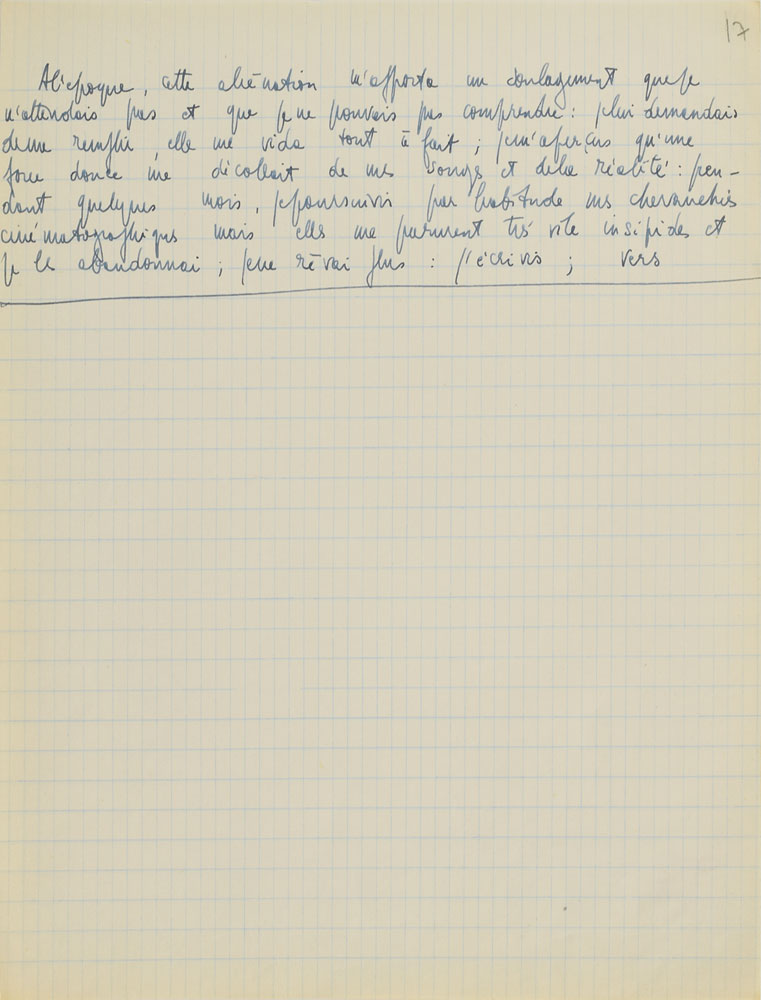 17
A l'époque, cette aliénation m'apporta un soulagement que je
n'attendais pas et que je ne pouvais pas comprendre : je lui demandais
de me remplir, elle me vida tout à fait ; je m'aperçus qu'une
force douce me décollait de mes songes et de la réalité : pen-
dant quelques mois, je poursuivis par habitude mes chevauchées
cinématographiques mais elles me parurent très vite insipides et
je les abandonnai ; je ne rêvai plus : j'écrivis ; vers